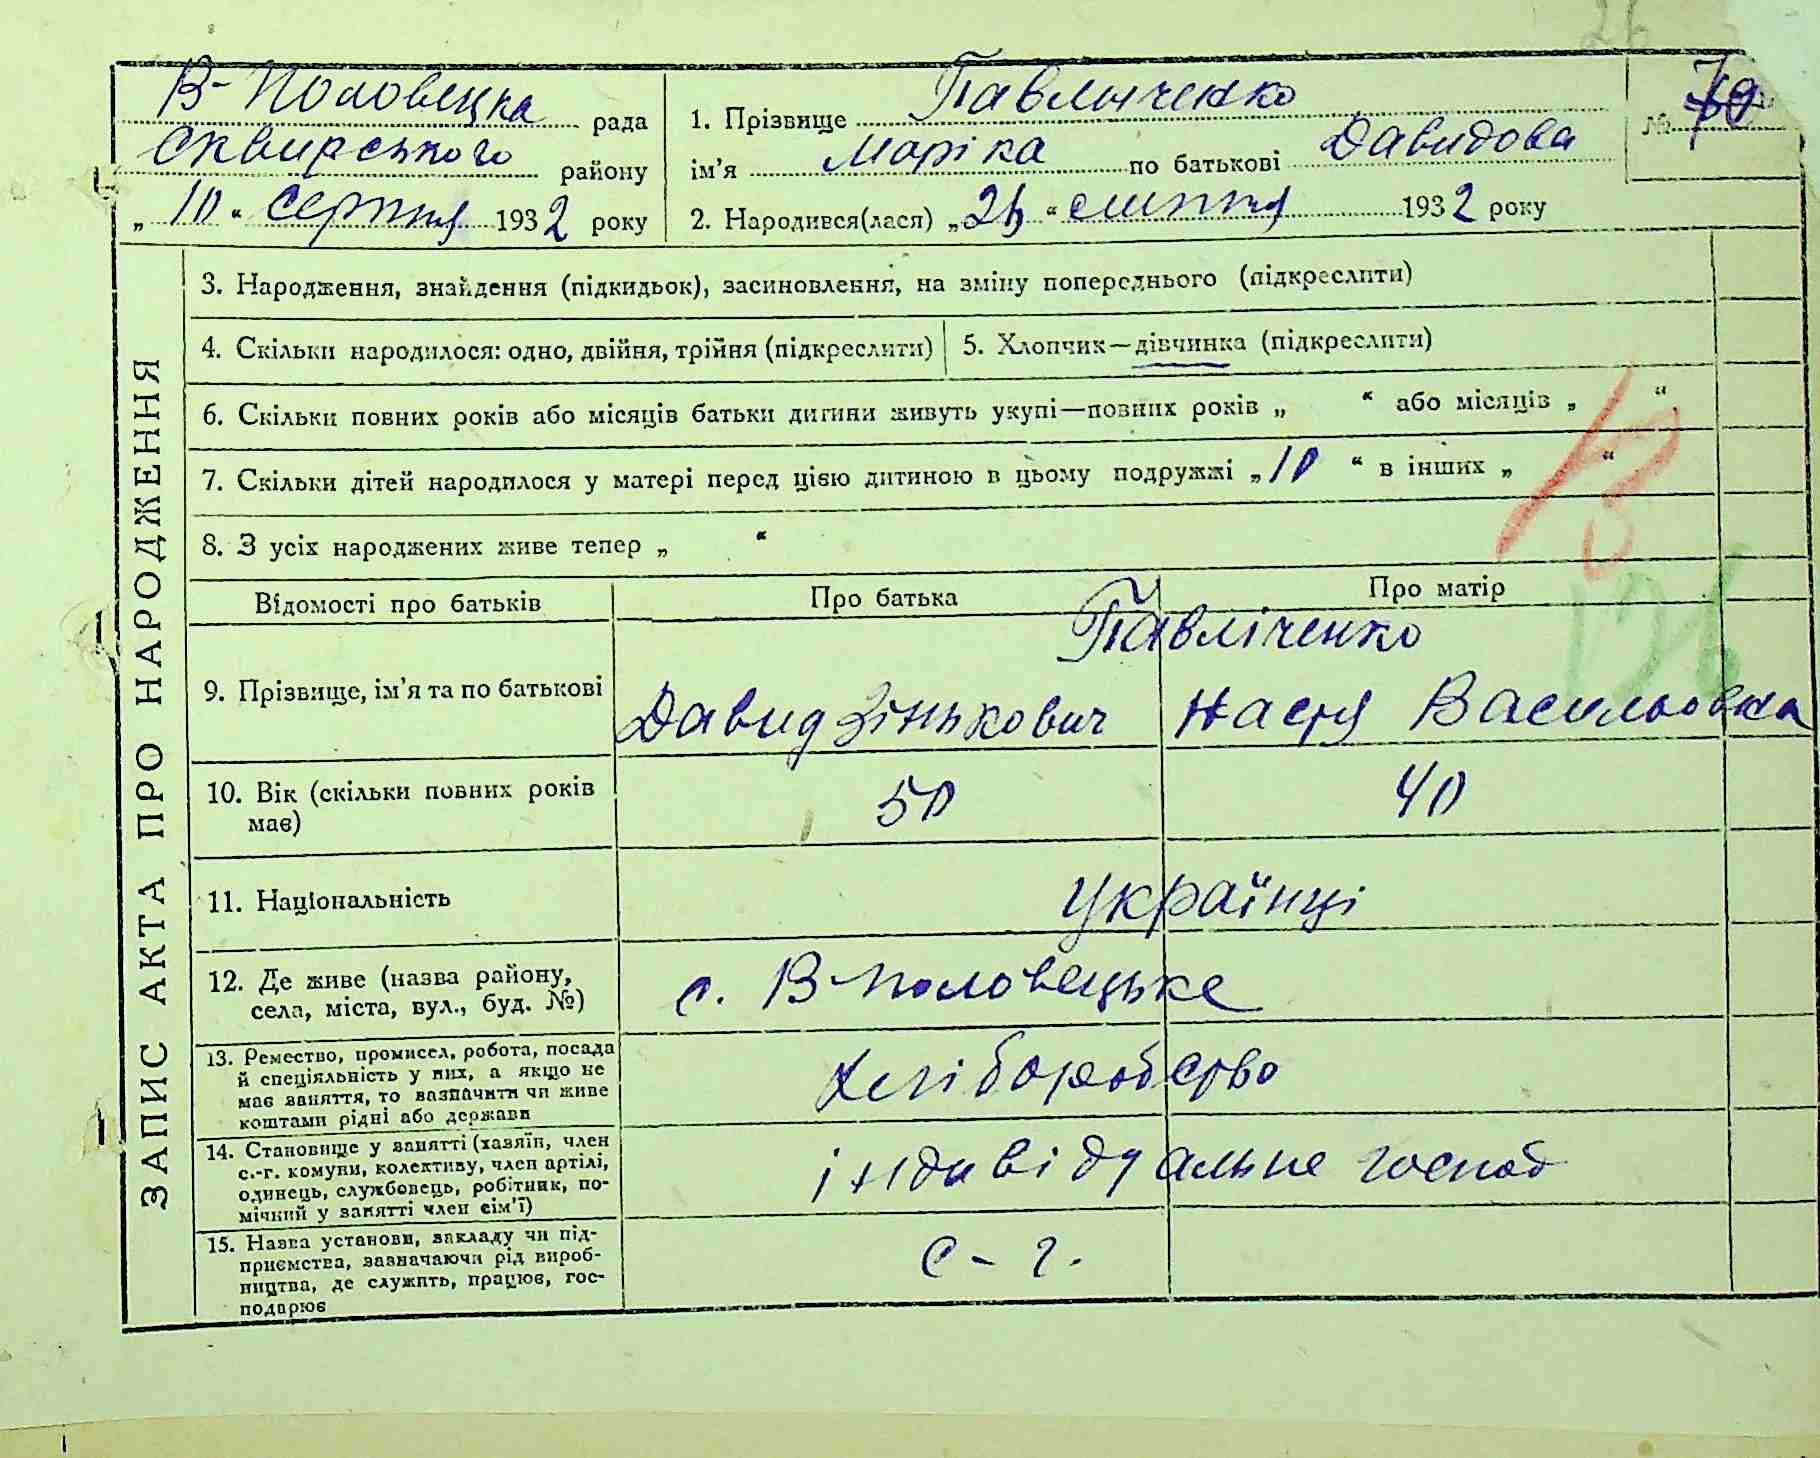 В-Половецка рада
Сквирського району
„ 10 “ Серпня 1932 року
1. Прізвище Павлыченко
ім'я Маріка по батькові Давидова
2. Народився(лася) „ “ 1932 року
№ 70
ЗАПИС АКТА ПРО НАРОДЖЕННЯ
3. Народження, знайдення (підкидьок), засиновлення, на зміну попереднього (підкреслити)
4. Скільки народилося: одно, двійня, трійня (підкреслити)
5. Хлопчик—дівчинка (підкреслити)
6. Скільки повних років або місяців батьки дитини живуть укупі—повних років „ “ або місяців „ “
7. Скільки дітей народилося у матері перед цією дитиною в цьому подружжі „10 “ в інших „ “
8. З усіх народжених живе тепер „ “
Відомості про батьків
Про батька
Про матір
9. Прізвище, ім'я та по батькові
Павліченко
Давид Зінькович
Настя Васильовка
10. Вік (скільки повних років
має)
50
40
11. Національність
Українці
12. Де живе (назва району,
села, міста, вул., буд. №)
с. В-Половецьке
13. Ремество, промисел, робота, посада
й спеціяльність у них, а якщо не
має заняття, то зазначити чи живе
коштами рідні або держави
Хліборобство
14. Становище у занятті (хазяїн, член
с.-г. комуни, колективу, член артілі,
одинець, службовець, робітник, по-
мічний у занятті член сім'ї)
індивідуальне господ
15. Назва установи, закладу чи під-
приємства, зазначаючи рід вироб-
ництва, де служить, працює, гос-
подарює
с-г.